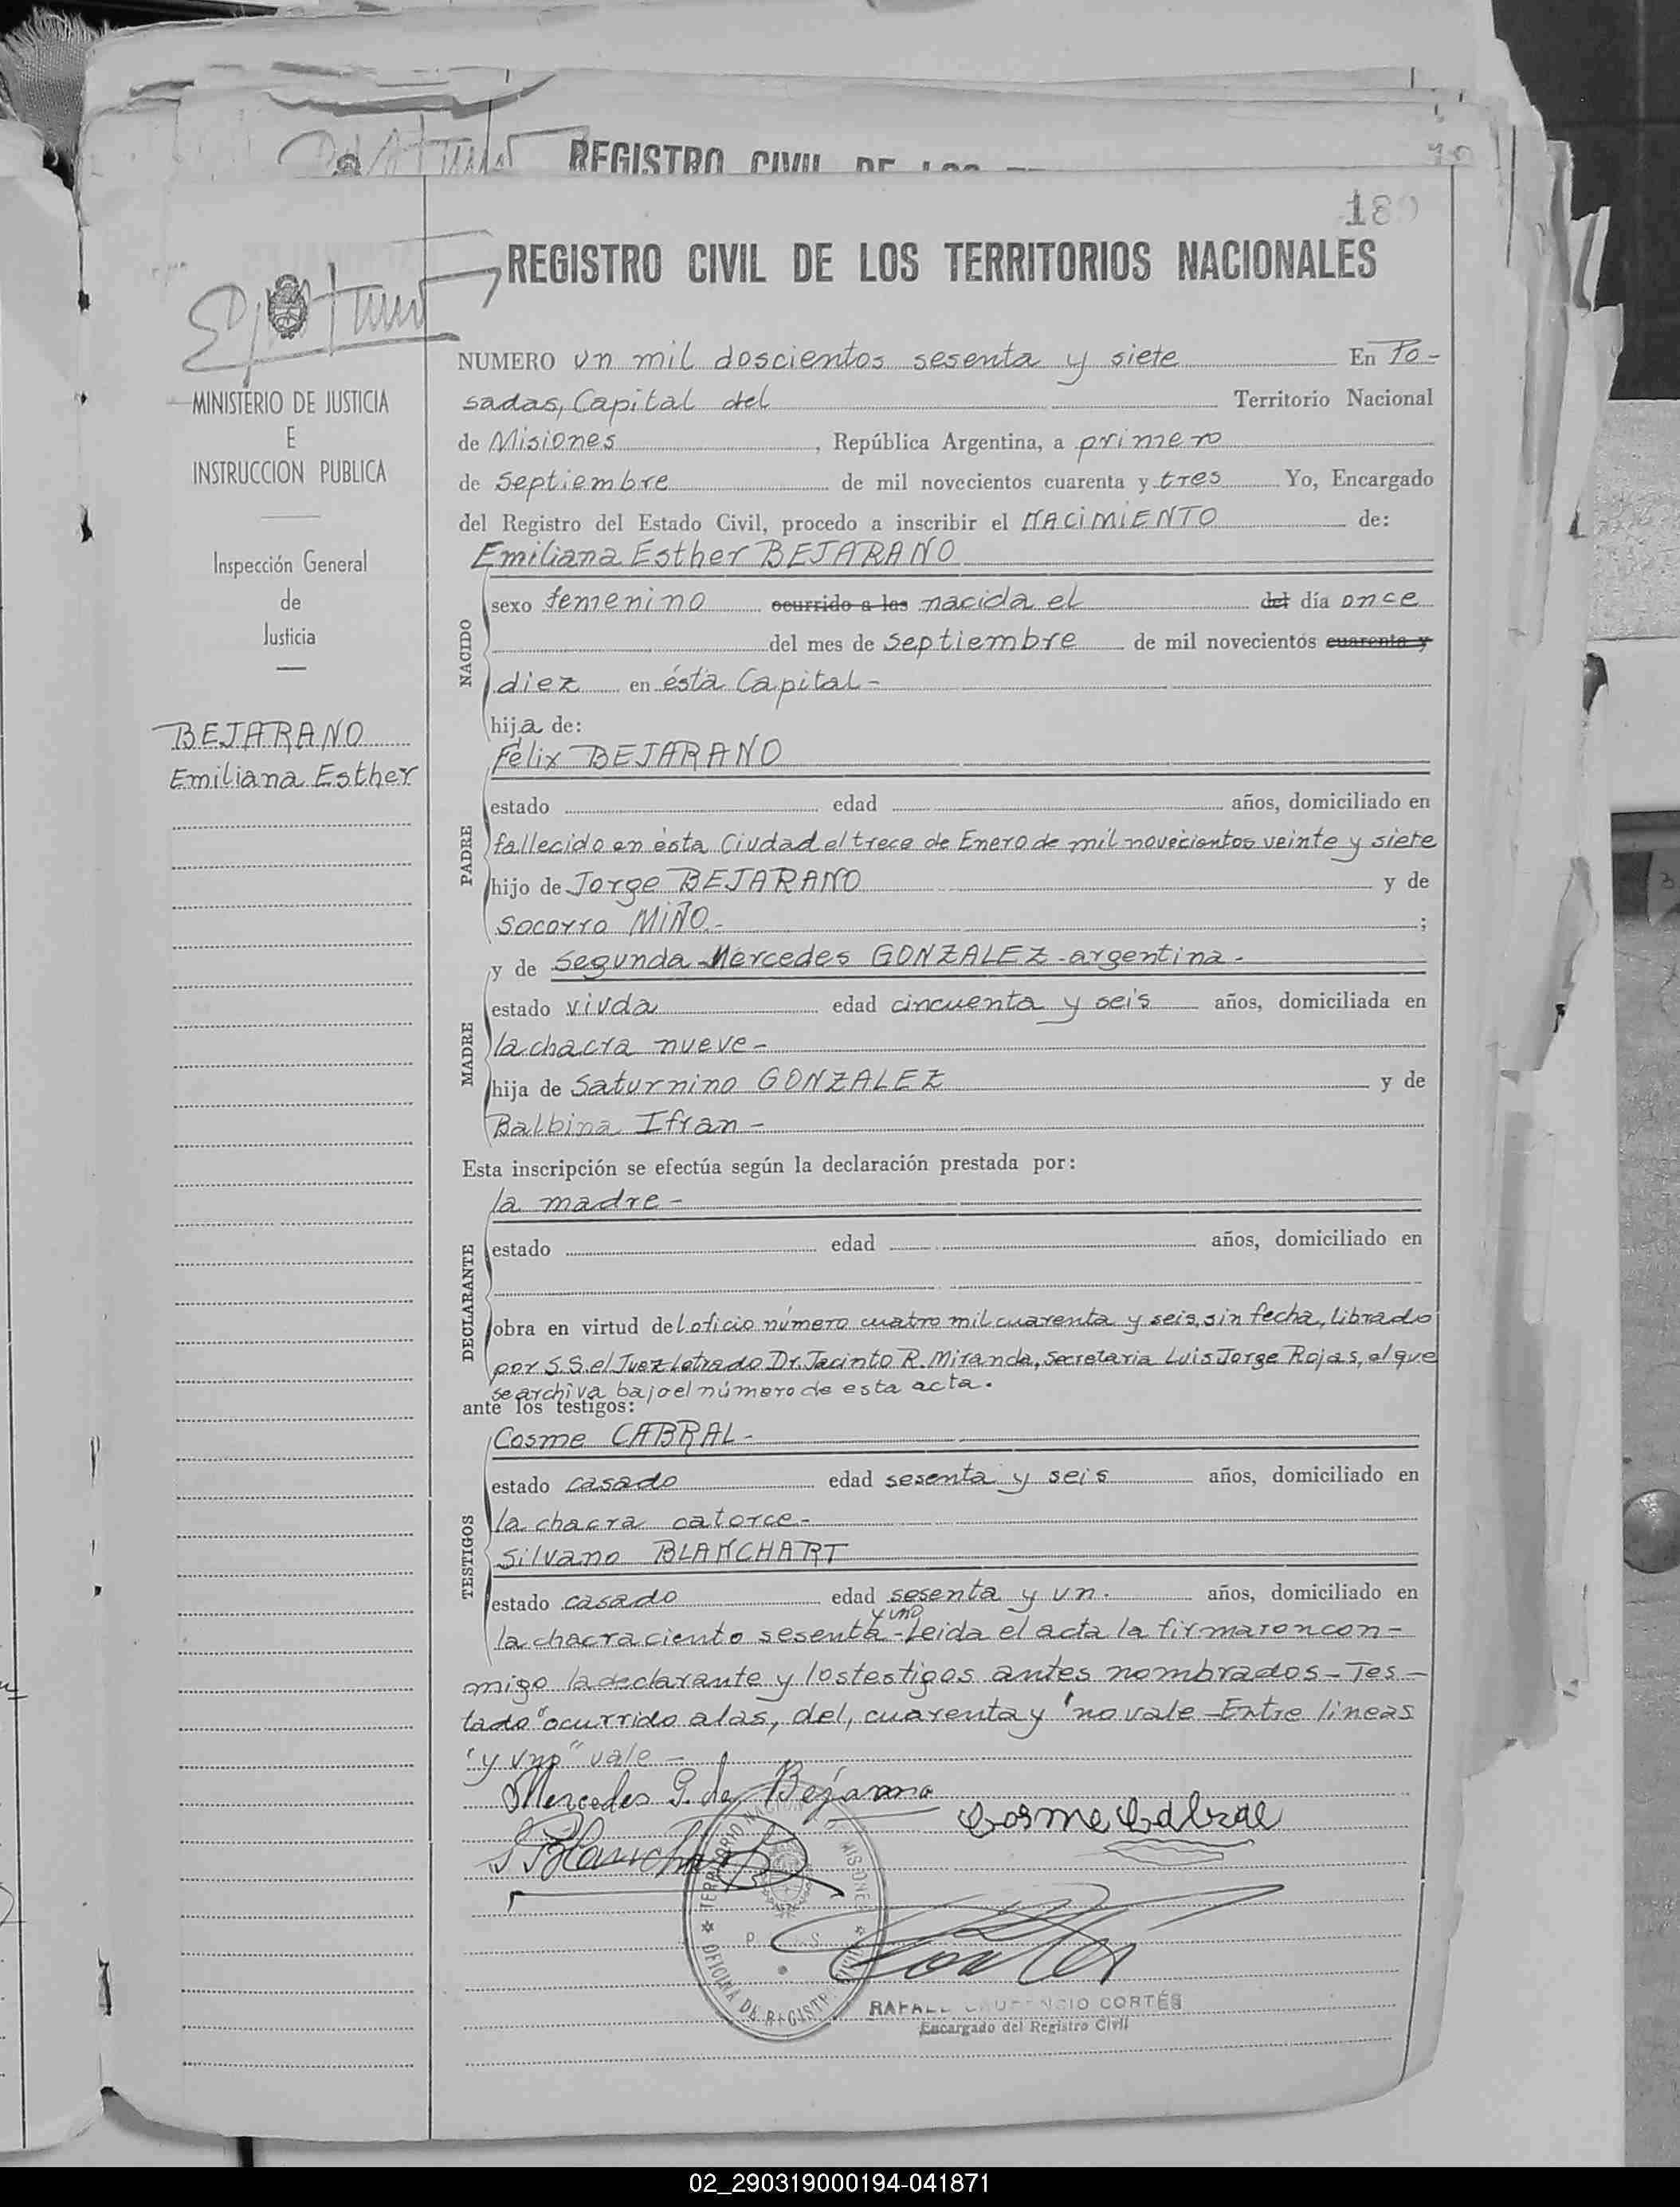 REGISTRO CIVIL
189
REGISTRO CIVIL DE LOS TERRITORIOS NACIONALES
MINISTERIO DE JUSTICIA
E
INSTRUCCION PUBLICA
Inspección General
de
Justicia
BEJARANO
Emiliana Esther
NUMERO un mil doscientos sesenta y siete En Po-
sadas, Capital del Territorio Nacional
de Misiones, República Argentina, a primero
de Septiembre de mil novecientos cuarenta y tres Yo, Encargado
del Registro del Estado Civil, procedo a inscribir el NACIMIENTO de:
Emiliana Esther BEJARANO
NACIDO
sexo femenino ocurrido a las nacida el del día once
del mes de septiembre de mil novecientos cuarenta y
diez en ésta Capital-
hija de:
Félix BEJARANO
PADRE
estado edad años, domiciliado en
fallecido en ésta Ciudad el trece de Enero de mil novecientos veinte y siete
hijo de Jorge BEJARANO y de
Socorro MIÑO.- ;
y de Segunda Mercedes GONZALEZ-argentina-
MADRE
estado viuda edad cincuenta y seis años, domiciliada en
la chacra nueve-
hija de Saturnino GONZALEZ y de
Balbina Ifran-
Esta inscripción se efectúa según la declaración prestada por:
la madre-
DECLARANTE
estado edad años, domiciliado en
obra en virtud del oficio número cuatro mil cuarenta y seis, sin fecha, librado
por S.S. el Juez Letrado Dr. Jacinto R. Miranda, Secretaria Luis Jorge Rojas, el que
se archiva bajo el número de esta acta.
ante los testigos:
Cosme CABRAL-
TESTIGOS
estado casado edad sesenta y seis años, domiciliado en
la chacra catorce-
Silvano BLANCHART
estado casado edad sesenta y un. años, domiciliado en
y uno
la chacra ciento sesenta-Leida el acta la firmaron con-
migo la declarante y los testigos antes nombrados-Tes-
tado "ocurrido a las, del, cuarenta y" no vale-Entre lineas
"y uno" vale-
Mercedes G. de Bejarano
Cosme Cabral
S Blanchart
TERRITORIO NACIONAL DE MISIONES
P. S.
OFICINA DE REGISTRO CIVIL
Cortés
RAFAEL CORTÉS
Encargado del Registro Civil
02_290319000194-041871